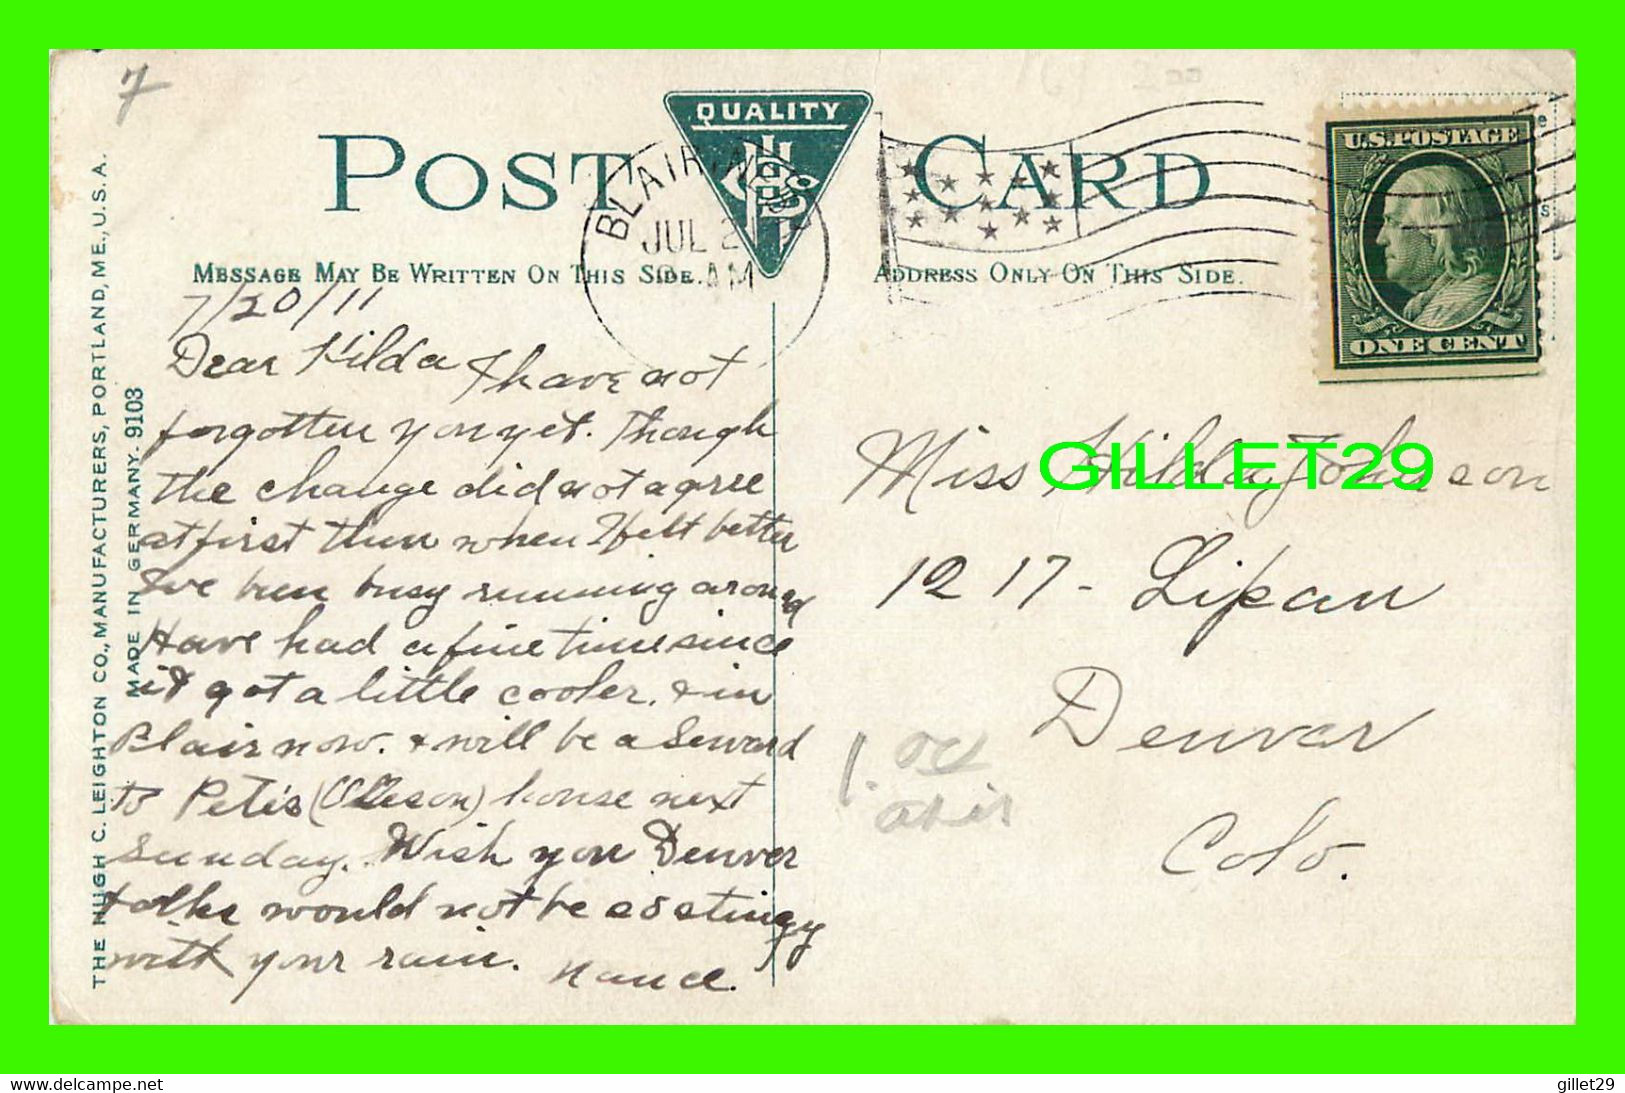 7
QUALITY
POST CARD
BLAIR, NEB.
JUL 2
AM
U.S. POSTAGE
ONE CENT
MESSAGE MAY BE WRITTEN ON THIS SIDE.
ADDRESS ONLY ON THIS SIDE.
THE HUGH C. LEIGHTON CO., MANUFACTURERS, PORTLAND, ME., U.S.A.
MADE IN GERMANY. 9103
7/20/11
Dear Hilda I have not
forgotten you yet. Though
the change did not agree
at first then when I felt better
I've been busy running around
Have had a fine time since
it got a little cooler. & in
Blair now. & will be a Seward
to Pete's (Oleson) house next
Sunday. Wish you Denver
folks would not be so stingy
with your rain.
Miss Hilda Johnson
1217 - Lipan
Denver
Colo.
1.00
GILLET29
gillet29